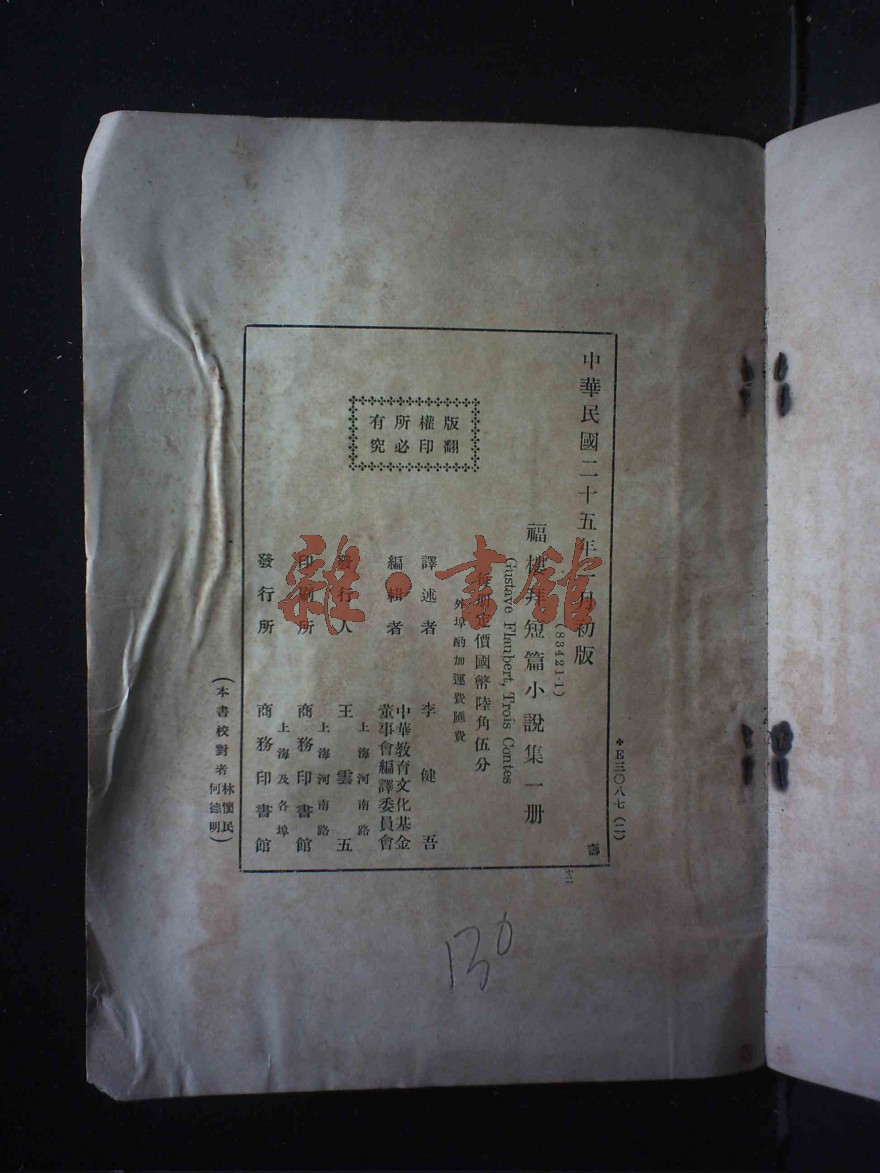 E三〇八七(二)
中華民國二十五年
月初版
(83421·1)
福樓拜短篇小說集一册
Gustave Flaubert, Trois Contes
每册定價國幣陸角伍分
外埠酌加運費匯費
譯述者 李健吾
編輯者 中華教育文化基金
董事會編譯委員會
發行人 王雲五
上海河南路
印刷所 商務印書館
上海河南路
發行所 商務印書館
上海及各埠
版權所有
翻印必究
(本書校對者 林懷民
何德明)
十二
130
雜·書館